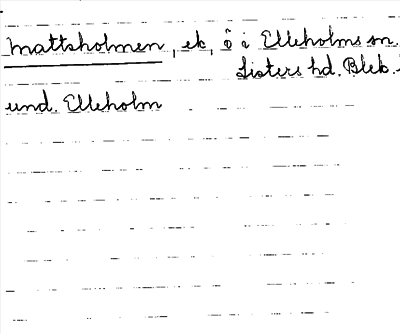 Mattsholmen, ek, ö i Elleholms sn.
Listers hd. Blek.
und. Elleholm